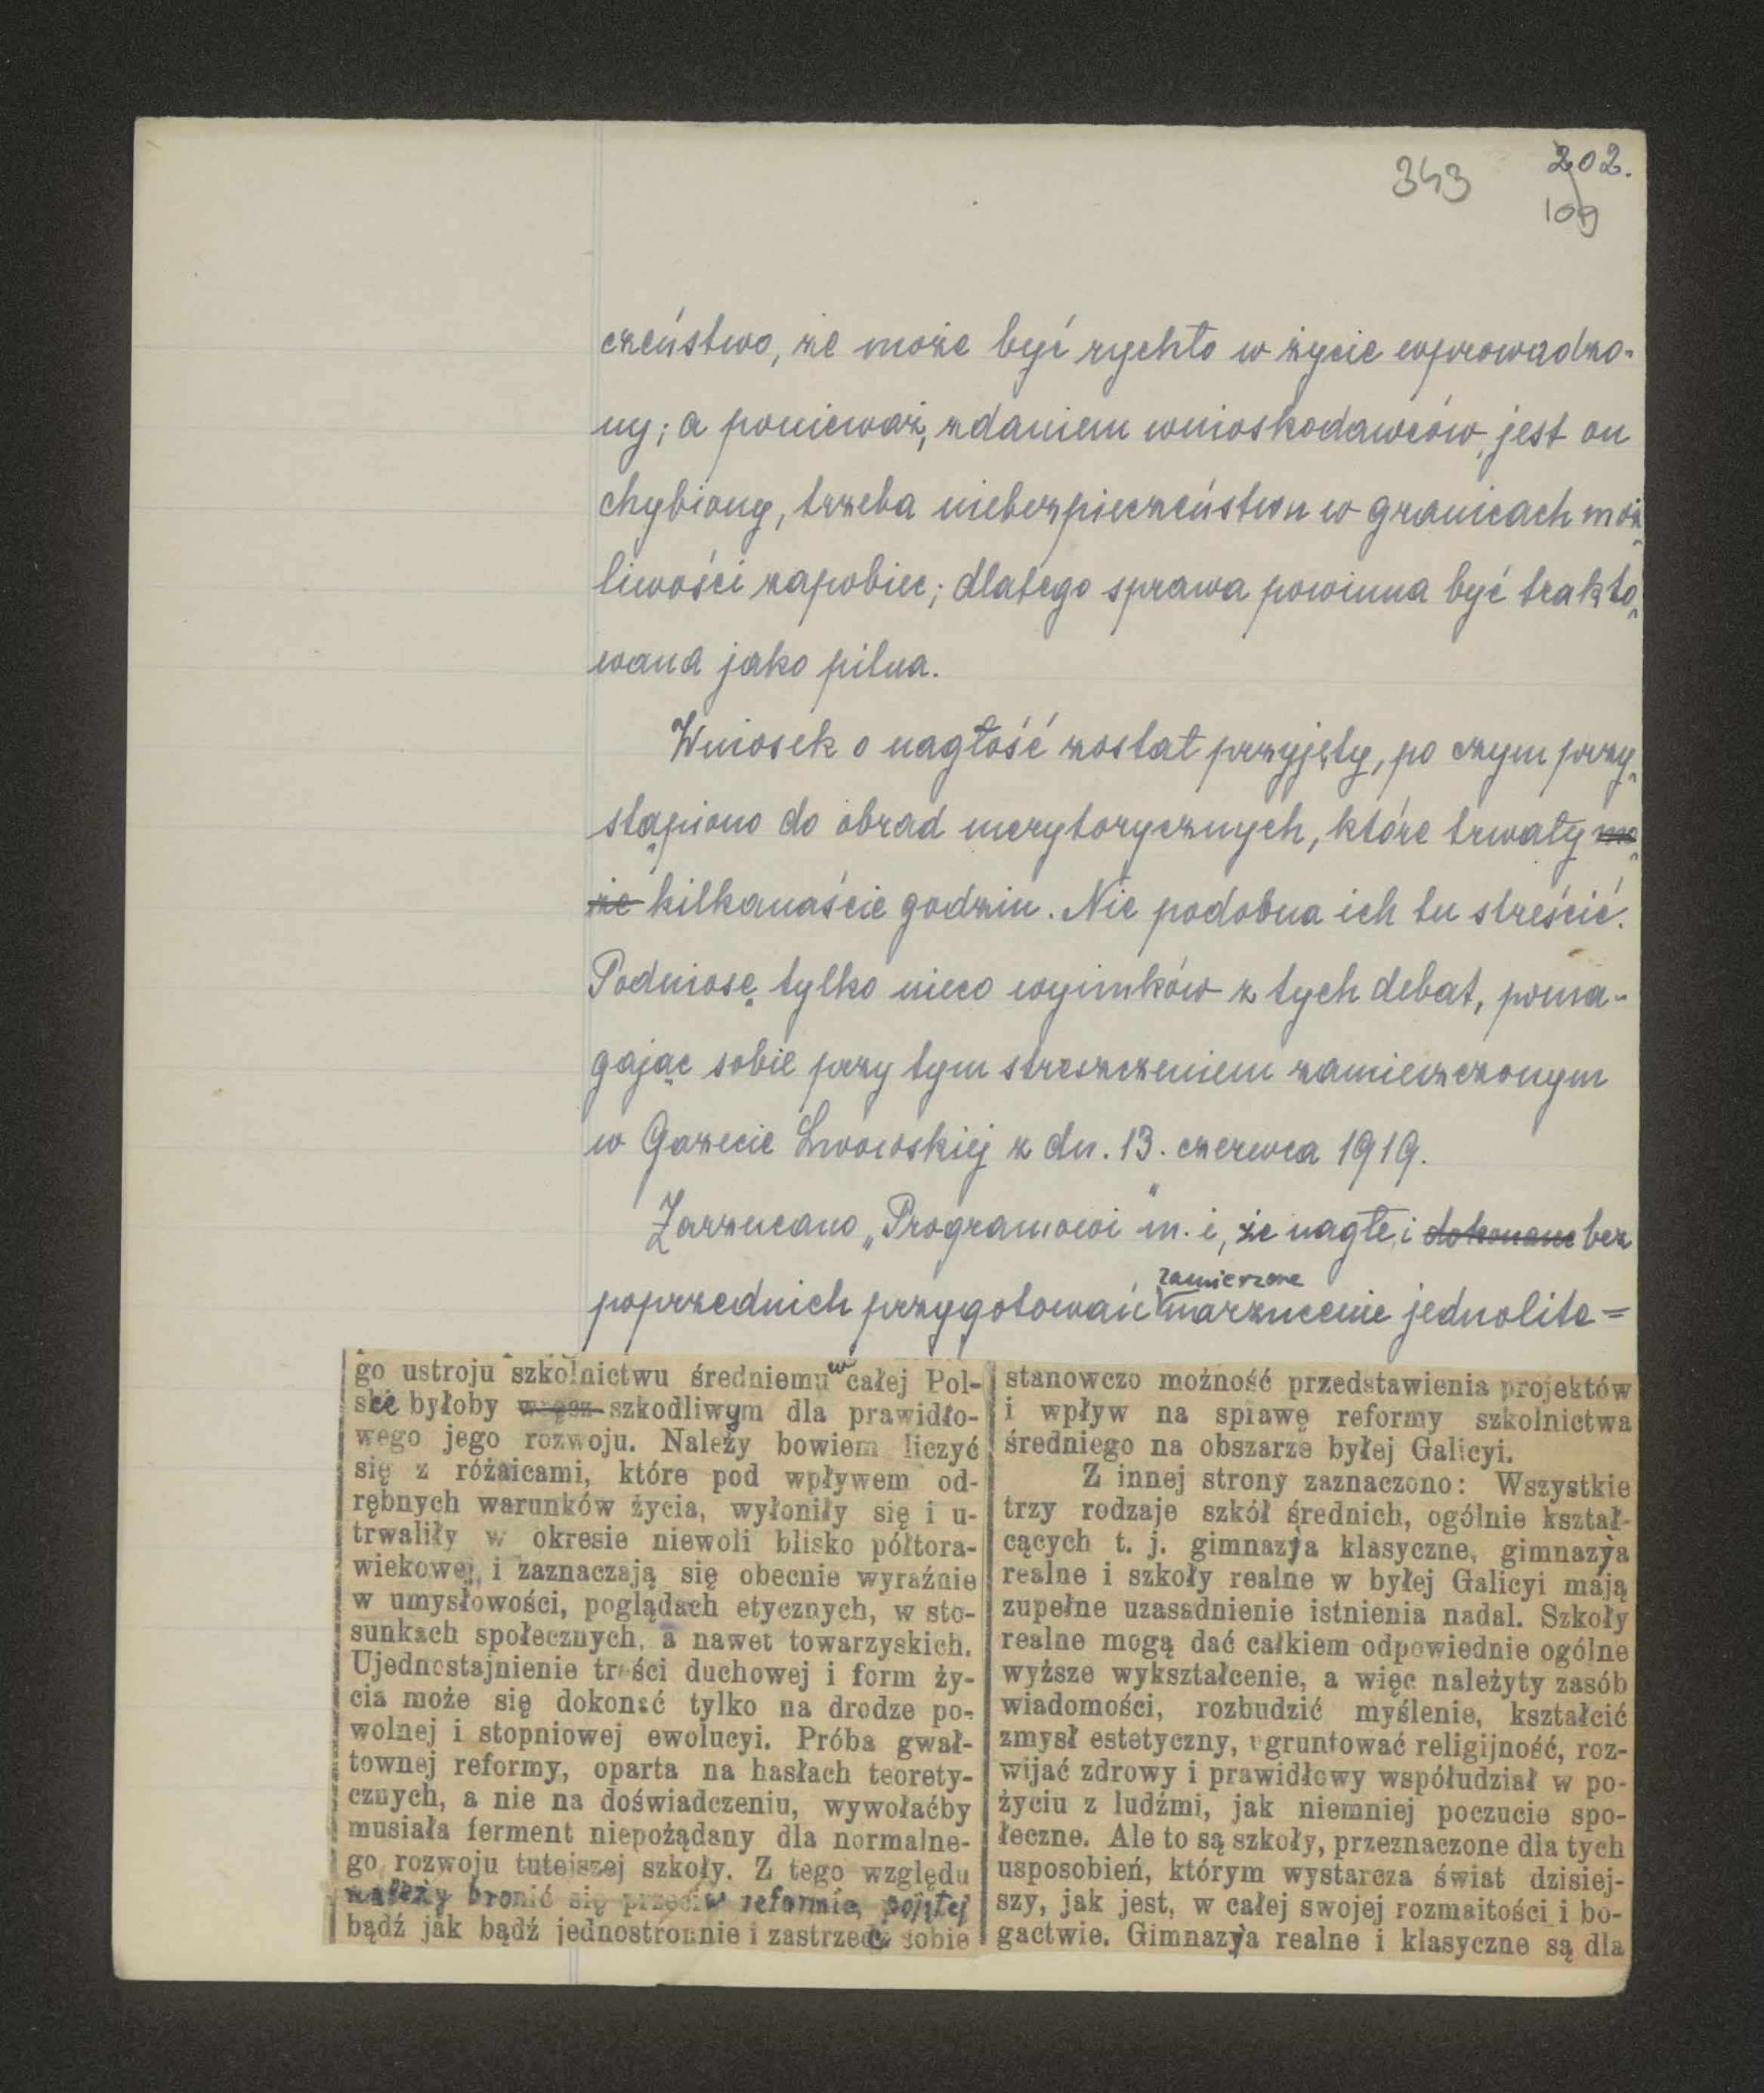 343
202.
109
czeństwo, że może być rychło w życie wprowadzo-
ny; a ponieważ, zdaniem wnioskodawców, jest on
chybiony, trzeba niebezpieczeństwu w granicach moż-
liwości zapobiec; dlatego sprawa powinna być trakto-
wana jako pilna.
Wniosek o nagłość został przyjęty, po czym przy-
stąpiono do obrad merytorycznych, które trwały mo-
że kilkanaście godzin. Nie podobna ich tu streścić.
Podniosę tylko nieco wyimków z tych debat, poma-
gając sobie przy tym streszczeniem zamieszczonym
w Gazecie Lwowskiej z dn. 13. czerwca 1919.
Zarzucano „Programowi" m. i, że nagłe i dokonane bez
zamierzone
poprzednich przygotowań narzucenie jednolite=
go ustroju szkolnictwu średniemu w całej Pol-
sce byłoby wręcz szkodliwym dla prawidło-
wego jego rozwoju. Należy bowiem liczyć
się z różnicami, które pod wpływem od-
rębnych warunków życia, wyłoniły się i u-
trwaliły w okresie niewoli blisko półtora-
wiekowej, i zaznaczają się obecnie wyraźnie
w umysłowości, poglądach etycznych, w sto-
sunkach społecznych, a nawet towarzyskich.
Ujednostajnienie treści duchowej i form ży-
cia może się dokonać tylko na drodze po-
wolnej i stopniowej ewolucyi. Próba gwał-
townej reformy, oparta na hasłach teorety-
cznych, a nie na doświadczeniu, wywołaćby
musiała ferment niepożądany dla normalne-
go rozwoju tutejszej szkoły. Z tego względu
należy bronić się przeciw reformie, pojętej
bądź jak bądź jednostronnie i zastrzec sobie
stanowczo możność przedstawienia projektów
i wpływ na sprawę reformy szkolnictwa
średniego na obszarze byłej Galicyi.
Z innej strony zaznaczono: Wszystkie
trzy rodzaje szkół średnich, ogólnie kształ-
cących t. j. gimnazya klasyczne, gimnazya
realne i szkoły realne w byłej Galicyi mają
zupełne uzasadnienie istnienia nadal. Szkoły
realne mogą dać całkiem odpowiednie ogólne
wyższe wykształcenie, a więc należyty zasób
wiadomości, rozbudzić myślenie, kształcić
zmysł estetyczny, ugruntować religijność, roz-
wijać zdrowy i prawidłowy współudział w po-
życiu z ludźmi, jak niemniej poczucie spo-
łeczne. Ale to są szkoły, przeznaczone dla tych
usposobień, którym wystarcza świat dzisiej-
szy, jak jest, w całej swojej rozmaitości i bo-
gactwie. Gimnazya realne i klasyczne są dla